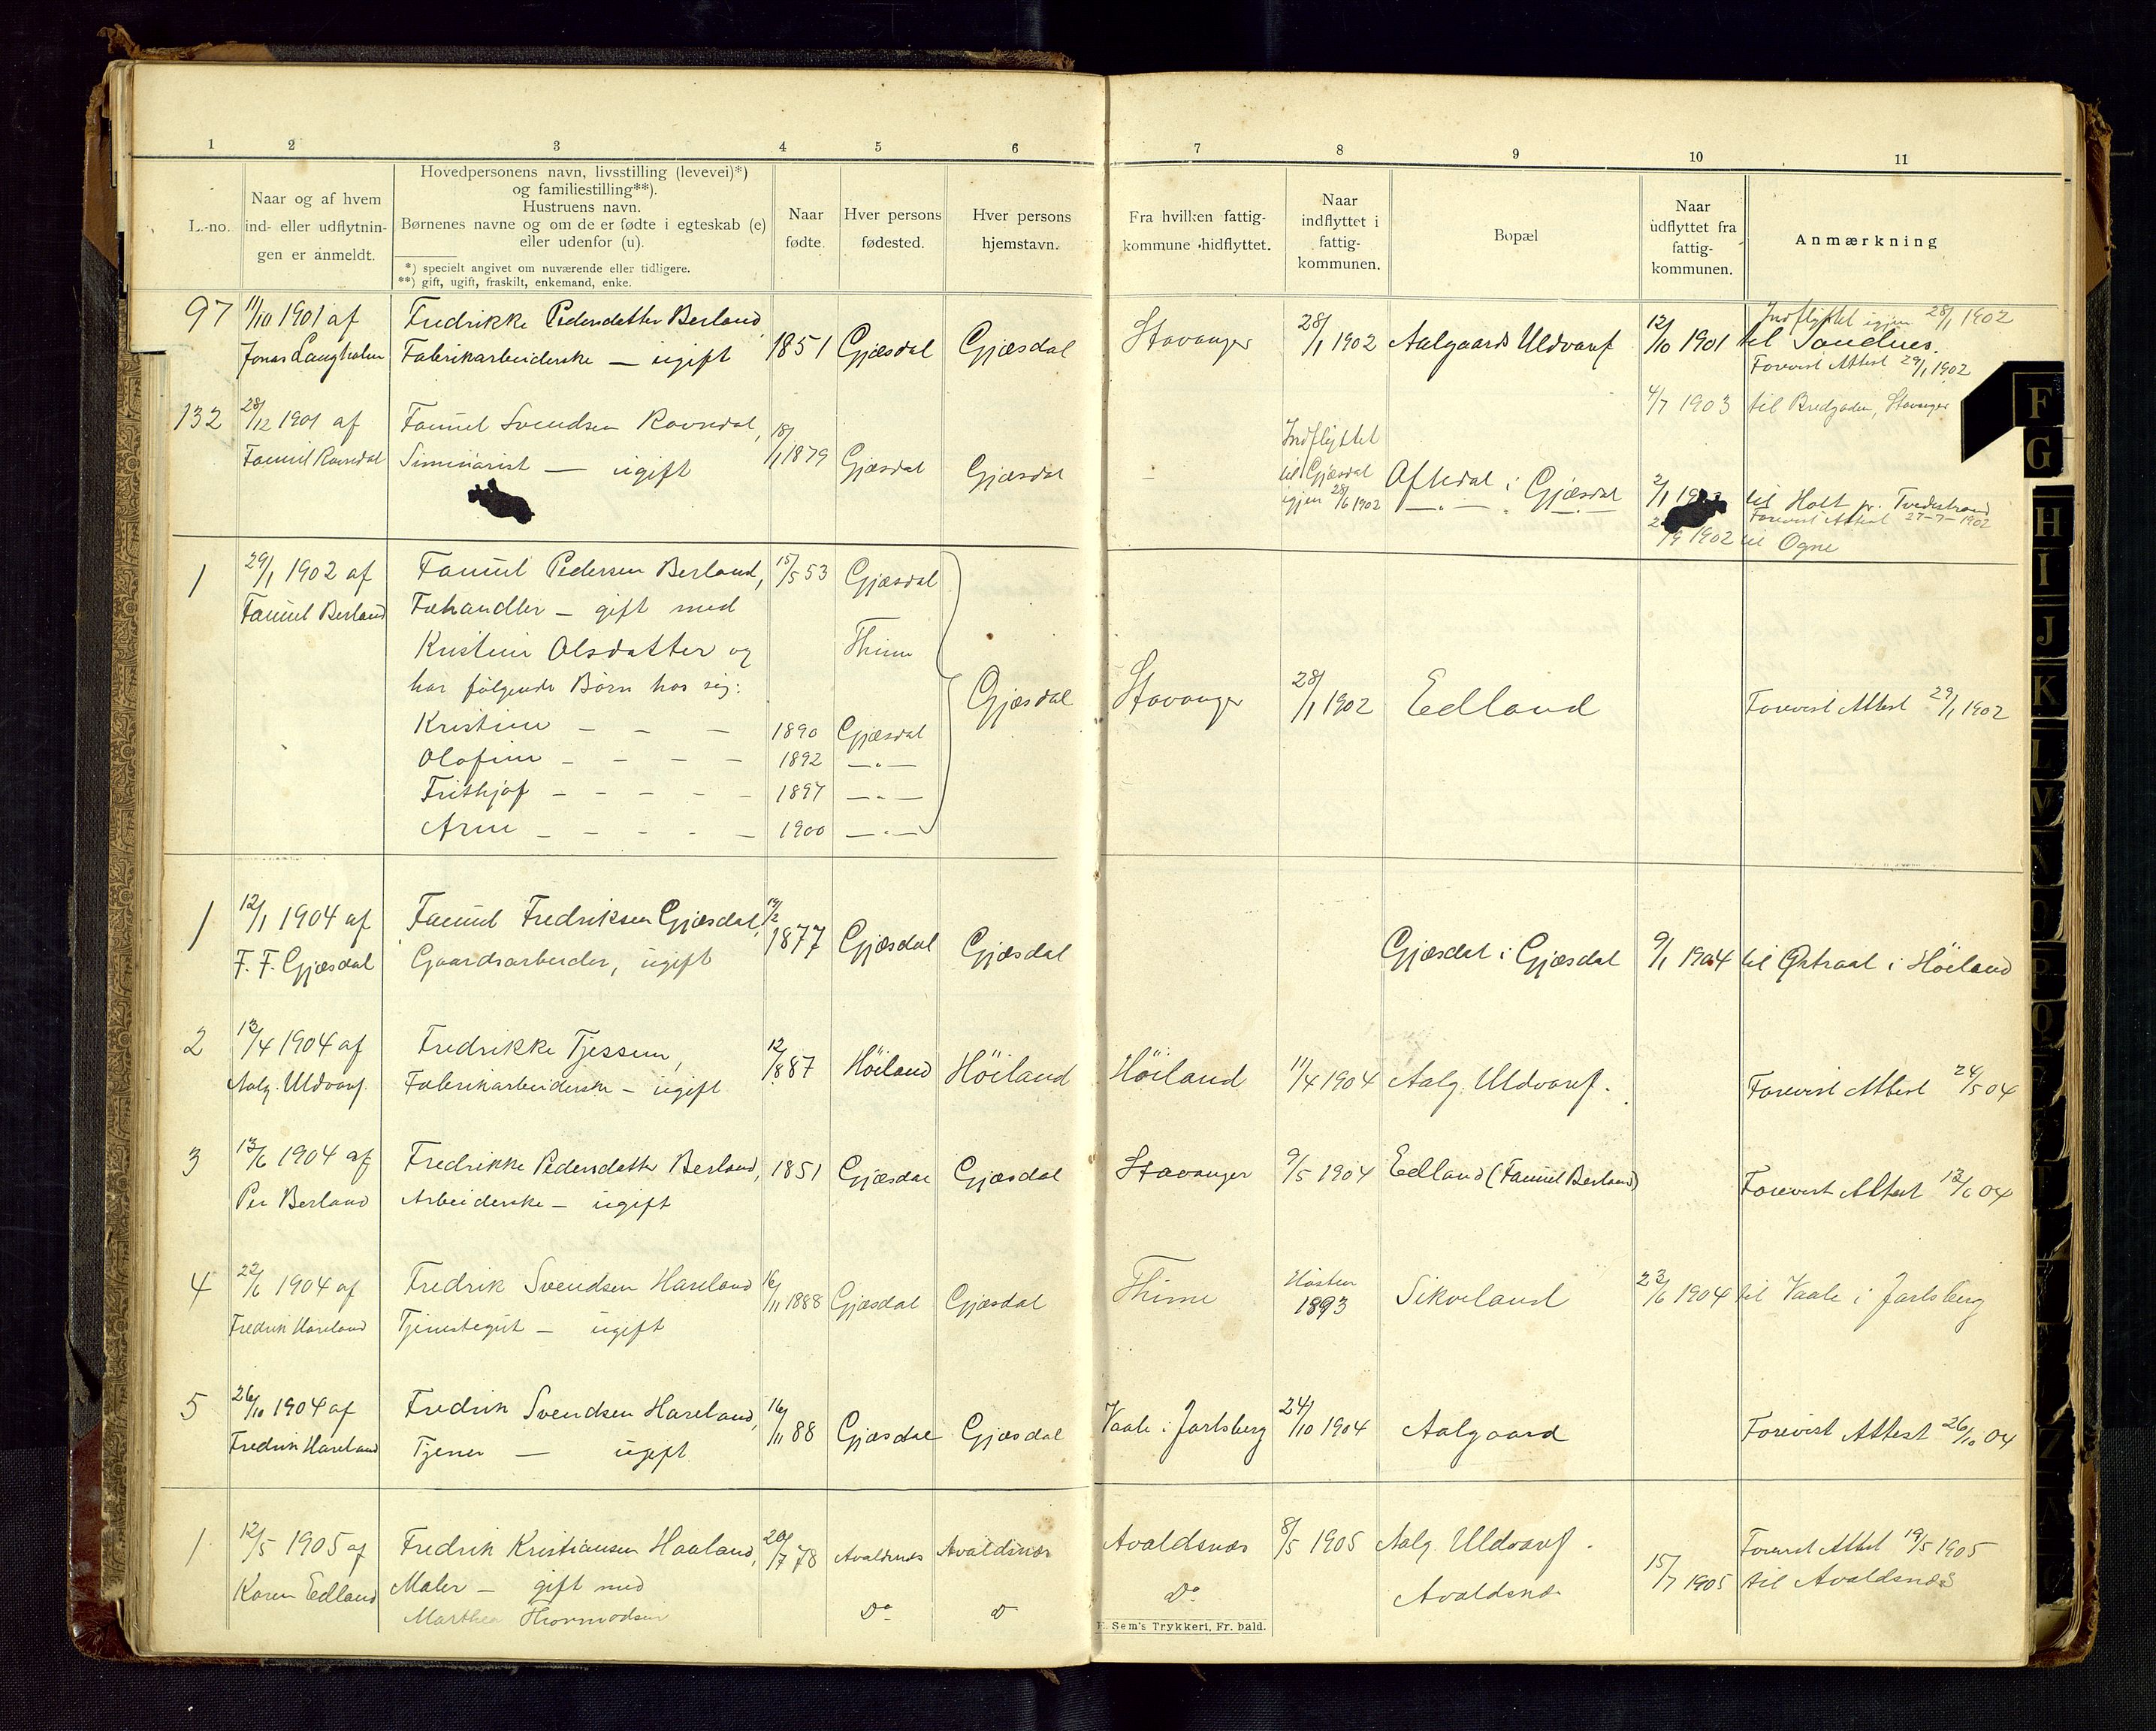 1 2 3 4 5 6 7 8 9 10 11
L.-no.
Naar og af hvem
ind- eller udflytnin-
gen er anmeldt.
Hovedpersonens navn, livsstilling (levevei)*)
og familiestilling**).
Hustruens navn.
Børnenes navne og om de er fødte i egteskab (e)
eller udenfor (u).
*) specielt angivet om nuværende eller tidligere.
**) gift, ugift, fraskilt, enkemand, enke.
Naar
fødte.
Hver persons
fødested.
Hver persons
hjemstavn.
Fra hvilken fattig-
kommune hidflyttet.
Naar
indflyttet i
fattig-
kommunen.
Bopæl
Naar
udflyttet fra
fattig-
kommunen.
Anmærkning
Indflyttet igjen 28/1 1902
97 11/10 1901 af Fredrikke Pedersdatter Berland, 28/1 1902 Aalgaards Uldvaref 12/10 1901 til Sandnes.
Jonas Langholen Fabrikarbeiderske — ugift 1851 Gjæsdal Gjæsdal Stavanger Forevist Attest 29/1 1902
4/7 1903 til Bredgaden, Stavanger
132 28/12 1901 af Faniel Svendsen Ravndal, 18/1 1879 Indflyttet
Faniel Ravndal Siminarist — ugift Gjæsdal Gjæsdal — til Gjæsdal Afledal i Gjæsdal
igjen 28/6 1902 2/1 til Holt pr. Tvedestrand
Forevist Attest 27-7-1902
/9 1902 til Ogne
1 29/1 1902 af Faniel Pedersen Berland, 15/5 53 Gjæsdal
Faniel Berland Fæhandler — gift med
Kristine Olsdatter og Thime
har følgende Børn hos sig: Gjæsdal Stavanger 28/1 1902 Edland Forevist Attest 29/1 1902
Kristine — — — 1890 Gjæsdal
Olafine — — — — 1892 —"—
Frithjof — — — — — 1897 —"—
Arne — — — — — 1900 —"—
1 12/1 1904 af Faniel Fredriksen Gjæsdal, 19/2 1877 Gjæsdal Gjæsdal Gjæsdal i Gjæsdal 9/1 1904 til Østraat i Höiland
F. F. Gjæsdal Gaardsarbeider, ugift
2 13/4 1904 af Fredrikke Tjessem, 12/8 87 Höiland Höiland Höiland 11/4 1904 Aalg. Uldvaref. Forevist Attest 24/5 04
Aalg. Uldvaref. Fabrikarbeiderske — ugift
3 13/6 1904 af Fredrikke Pedersdatter Berland, 1851 Gjæsdal Gjæsdal Stavanger 9/5 1904 Edland (Faniel Berland) Forevist Attest 13/6 04
Per Berland Arbeiderske — ugift
4 22/6 1904 af Fredrik Svendsen Haveland 16/11 1888 Gjæsdal Gjæsdal Thime Høsten 1893 Sikveland 23/6 1904 til Vaale i Jarlsberg
Fredrik Haveland Tjenestegut — ugift
5 26/10 1904 af Fredrik Svendsen Haveland, 16/11 88 Gjæsdal Gjæsdal Vaale i Jarlsberg 24/10 1904 Aalgaard Forevist Attest 26/10 04
Fredrik Haveland Tjener — ugift
1 12/5 1905 af Fredrik Kristiansen Haaland, 20/7 78 Avaldsnæs Avaldsnæs Avaldsnæs 8/5 1905 Aalg. Uldvaref. Forevist Attest 19/5 1905
Karen Edland Maler — gift med Do Avaldsnæs 15/7 1905 til Avaldsnæs
Marthea Thormodsen Do D
Sem's Trykkeri, Fr. hald.
F
G
H
I
J
K
L
M
N